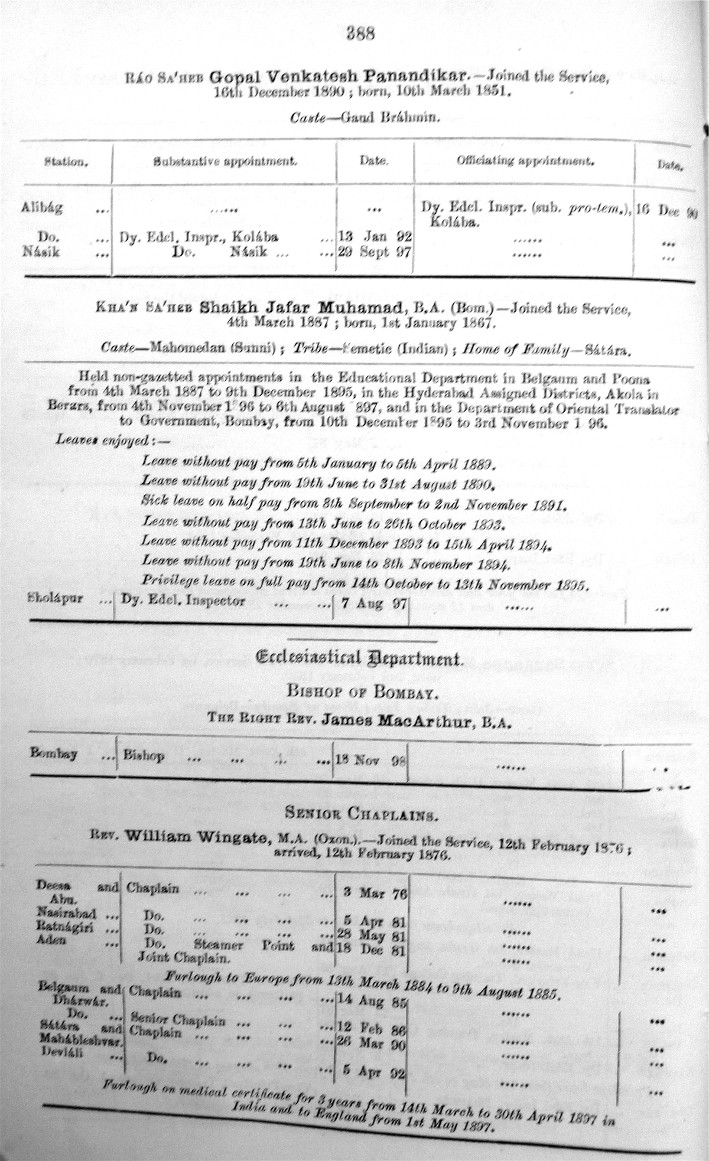 388
RÁO SA'HEB Gopal Venkatesh Panandikar.—Joined the Service,
16th December 1890 ; born, 10th March 1851.
Caste—Gaud Bráhmin.
Station. Substantive appointment. Date. Officiating appointment. Date.
Alibág ... ...... ... Dy. Edcl. Inspr. (sub. pro-tem.), 16 Dec 90
Kolába.
Do. ... Dy. Edcl. Inspr., Kolába ... 13 Jan 92 ...... ...
Násik ... Do. Násik ... ... 29 Sept 97 ...... ...
KHA'N SA'HEB Shaikh Jafar Muhamad, B.A. (Bom.)—Joined the Service,
4th March 1887 ; born, 1st January 1867.
Caste—Mahomedan (Sunni) ; Tribe—emetic (Indian) ; Home of Family—Sátára.
Held non-gazetted appointments in the Educational Department in Belgaum and Poona
from 4th March 1887 to 9th December 1895, in the Hyderabad Assigned Districts, Akola in
Berars, from 4th November 1 96 to 6th August 897, and in the Department of Oriental Translator
to Government, Bombay, from 10th December 1895 to 3rd November 1 96.
Leaves enjoyed :—
Leave without pay from 5th January to 5th April 1889.
Leave without pay from 19th June to 31st August 1890.
Sick leave on half pay from 8th September to 2nd November 1891.
Leave without pay from 13th June to 26th October 1893.
Leave without pay from 11th December 1893 to 15th April 1894.
Leave without pay from 19th June to 8th November 1894.
Privilege leave on full pay from 14th October to 13th November 1895.
Sholápur ... Dy. Edcl. Inspector ... ... 7 Aug 97 ...... ...
Ecclesiastical Department.
BISHOP OF BOMBAY.
THE RIGHT REV. James MacArthur, B.A.
Bombay ... Bishop ... ... ... ... 18 Nov 98 ...... ..
SENIOR CHAPLAINS.
REV. William Wingate, M.A. (Oxon.).—Joined the Service, 12th February 1876 ;
arrived, 12th February 1876.
Deesa and Chaplain ... ... ... ... 3 Mar 76 ...... ...
Abu.
Nasirabad ... Do. ... ... ... ... 5 Apr 81 ...... ...
Ratnágiri ... Do. ... ... ... ... 28 May 81 ...... ...
Aden ... Do. Steamer Point and 18 Dec 81 ...... ...
Joint Chaplain.
Furlough to Europe from 13th March 1884 to 9th August 1885.
Belgaum and Chaplain ... ... ... ... 14 Aug 85 ...... ...
Dhárwár.
Do. ... Senior Chaplain ... ... ... 12 Feb 86 ...... ...
Sátára and Chaplain ... ... ... ... 26 Mar 90 ...... ...
Mahábleshvar.
Devláli ... Do. ... ... ... ... 5 Apr 92 ...... ...
Furlough on medical certificate for 3 years from 14th March to 30th April 1897 in
India and to England from 1st May 1897.